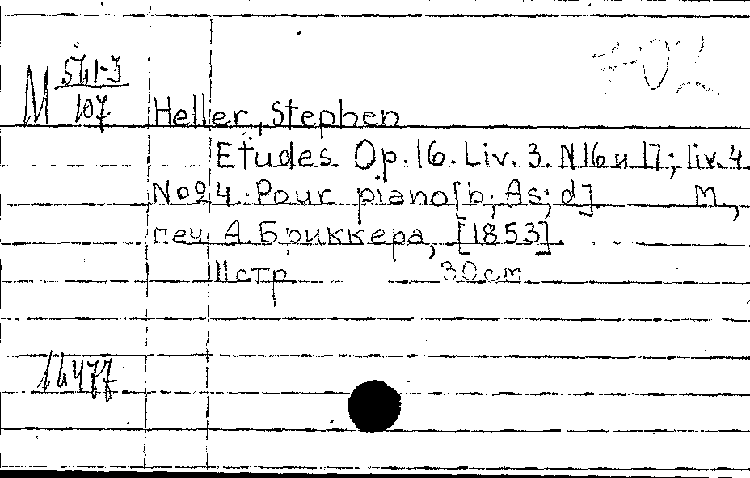 M 541-3
107
702
Heller, Stephen
Etudes. Op. 16. Liv. 3. N 16 и 17; liv. 4
No 24. Pour piano [b; As; d]. М,
печ. А. Бриккера, [1853].
11 стр 30 см
14477